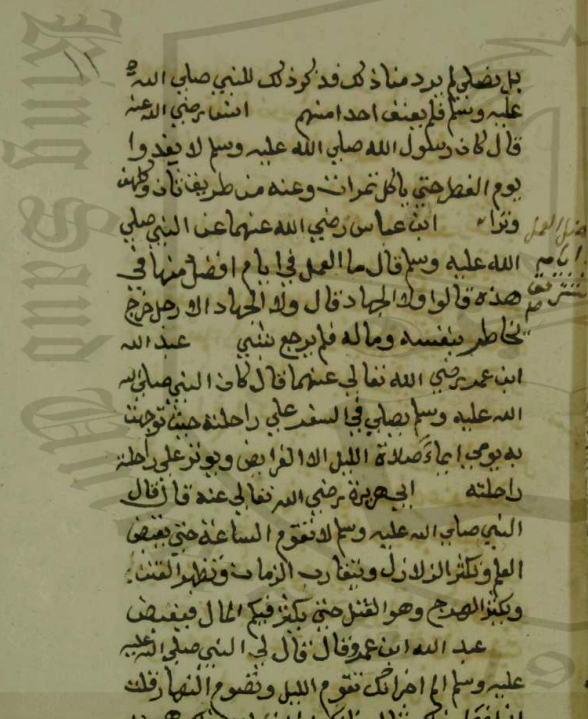 ١١
بل نصلي لم يرد منا ذلك فذكر ذلك للنبي صلى الله
عليه وسلم فلم يعنف احدا منهم انس رضي الله عنه
قال كان رسول الله صلى الله عليه وسلم لا يغدوا
يوم الفطر حتى ياكل تمرات وعنه من طريق ثان وكلهن
وترا ابن عباس رضي الله عنهما عن النبي صلى
الله عليه وسلم قال ما العمل في ايام افضل منها في
هذه قالوا ولا الجهاد قال ولا الجهاد الا رجل خرج
يخاطر بنفسه وماله فلم يرجع بشي عبد الله
ابن عمر رضي الله تعالى عنهما قال كان النبي صلى الله
الله عليه وسلم يصلي في السفر على راحلته حيث توجهت
به يومي ايماء صلاة الليل الا الفرايض ويوتر على راحلته
راحلته ابي هريرة رضي الله تعالى عنه قال قال
النبي صلى الله عليه وسلم لا تقوم الساعة حتى يقبض
العلم وتكثر الزلازل ويتقارب الزمان وتظهر الفتن
ويكثر الهرج وهو القتل حتى يكثر فيكم المال فيفيض
عبد الله ابن عمرو قال قال لي النبي صلى الله عليه
عليه وسلم الم اخبر انك تقوم الليل وتصوم النهار قلت
فضل العمل
ايام
التشريق
King Saud